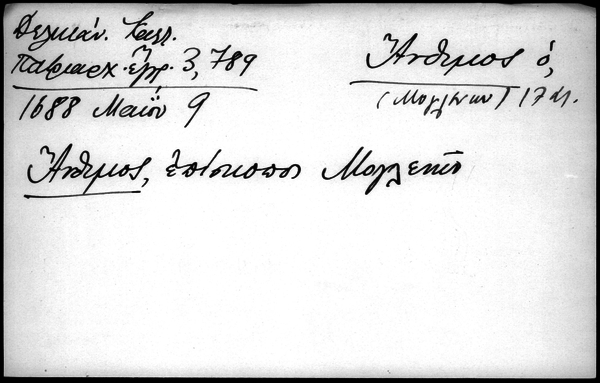 Δελικάν. Καλλ.
Πατριαρχ. ἔγγρ. 3, 789
1688 Μαΐου 9
Ἄνθιμος ὁ,
(Μογλενῶν) 17 αἰ.
Ἄνθιμος, ἐπίσκοπος Μογλενῶν